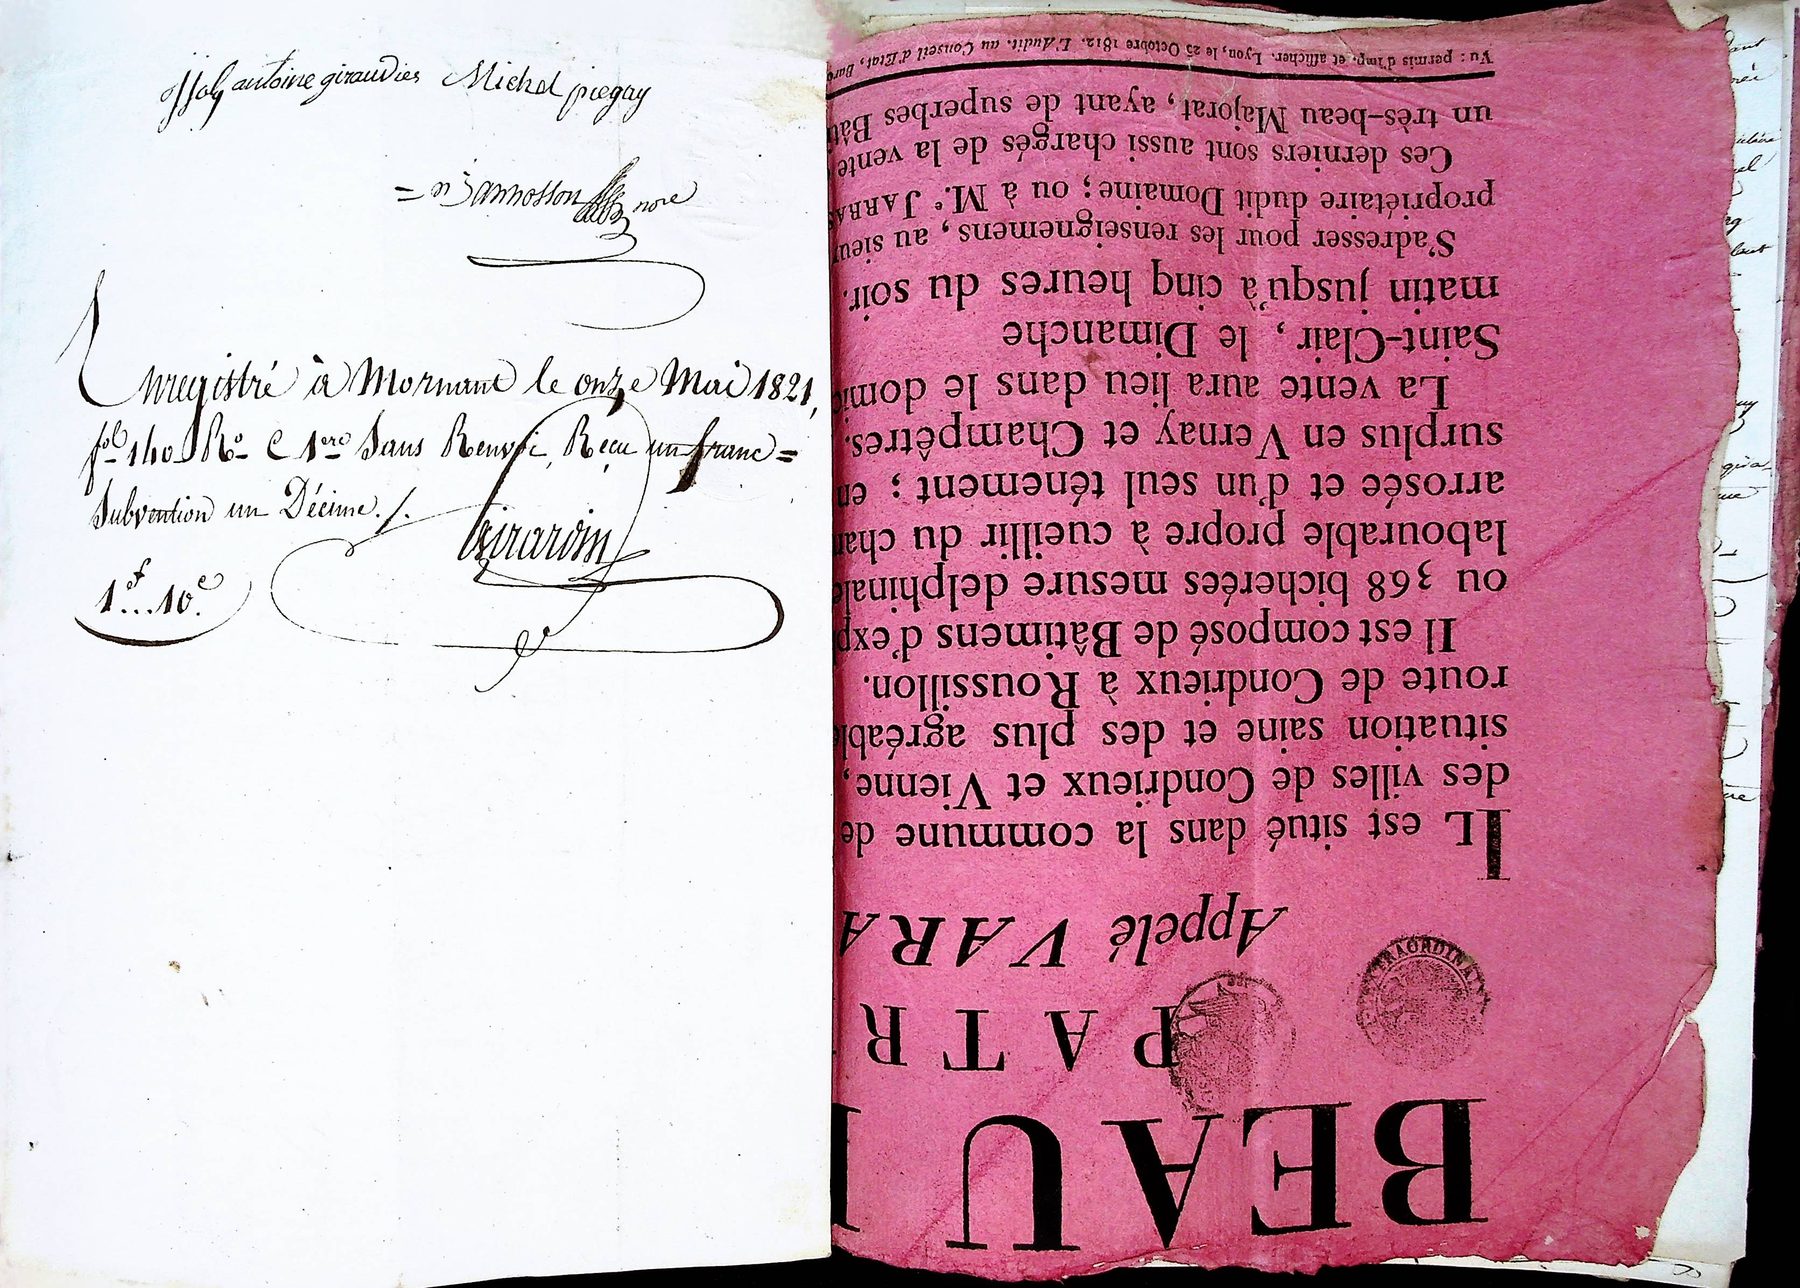 jjoly antoine giraudier Michel piegay
= n Jannosson nore
Enregistré à Mornant le onze Mai 1821,
fol. 140 Ro. C 1ere Sans Renvoi, Reçu un franc =
Subvention un Décime ./.
Girardin
1f...10c.
BEAU
PATR
Appelé VARA
IL est situé dans la commune de
des villes de Condrieux et Vienne,
situation saine et des plus agréable
route de Condrieux à Roussillon.
Il est composé de Bâtimens d'exp
ou 368 bicherées mesure delphinale
labourable propre à cueillir du chan
arrosée et d'un seul ténement ; en
surplus en Vernay et Champêtres.
La vente aura lieu dans le domic
Saint-Clair, le Dimanche
matin jusqu'à cinq heures du soir.
S'adresser pour les renseignemens, au sieur
propriétaire dudit Domaine ; ou à M.e JARRAS
Ces derniers sont aussi chargés de la vente
un très-beau Majorat, ayant de superbes Bât
Vu : permis d'imp. et afficher. Lyon, le 25 Octobre 1812. L'Audit. au Conseil d'Etat, Baro
EXTRAORDINA